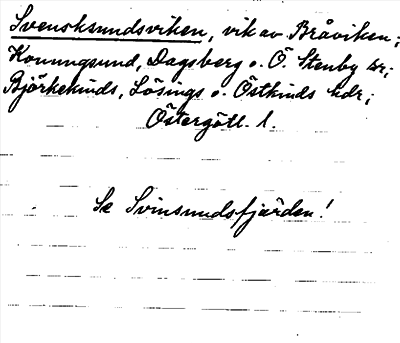 Svensksundsviken, vik av Bråviken;
Konungsund, Dagsberg o. Ö. Stenby sr;
Björkekinds, Lösings o. Östkinds hdr;
Östergötl. l.
Se Svinsundsfjärden!